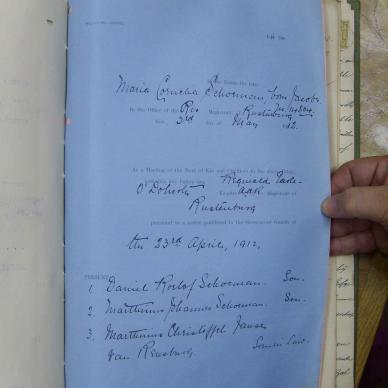 In the Estate the late
Maria Cornelia Schoeman, born Jacobs
In the Office of the Res Magistrate, Rustenburg
this 3rd day of May 1912.
At a Meeting of the Next of Kin and Creditors in the
before me Reginald
O'Doherty Magistrate of
Rustenburg
pursuant to a notice published in the Government Gazette of
the 23rd April, 1912,
PRESENT
1 Daniel Roelof Schoeman. Son.
2. Marthinus Johannes Schoeman. Son.
3. Marthinus Christoffel Janse
van Rensburg Son in Law.